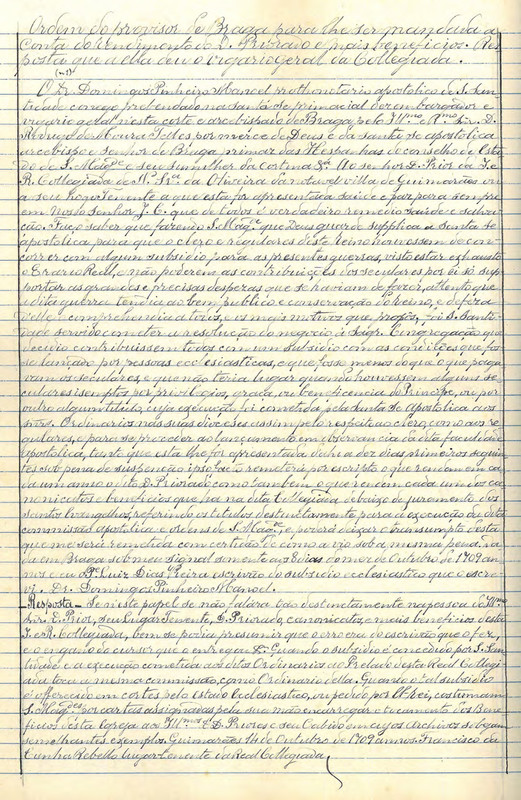 Ordem do Provisor de Braga para lhe ser mandada a
conta do rendimento do D. Priorado e mais beneficios. Res
posta que a ella deu o vigario geral da Collegiada.
O Dr. Domingos Pinheiro Manoel prothonotario apostolico de S. Santi
dade conego prebendado na santa sé primacial dezembargador e
vigario geral nesta corte e arcebispado de Braga pelo Illmo. Rmo. Snr. D.
Rodrigo de Moura Telles, por mercê de Deus e da santa sé apostolica
arcebispo e senhor de Braga primaz das Hespanhas do conselho de Esta
do de S. Magde. e seu sumilher da cortina &a. Ao senhor D. Prior da I. e
R. Collegiada de Na. Sra. da Oliveira da notavel villa de Guimarães ou
a seu logar tenente a que esta for apresentada saude e paz para sempre
em Nosso Senhor J. C. que de todos é verdadeiro remedio saude e salva
ção. Faço saber que fazendo S. Magde. que Deus guarde supplica á santa sé
apostolica para que o clero e regulares deste reino houvessem de con
correr com algum subsidio para as presentes guerras, visto estar exhausto
o Erario Real, e não poderem as contribuições dos seculares por si só sup
portar as grandes e precisas despezas que se haviam de fazer, attento que
a dita guerra tendia ao bem publico e conservação do reino, e defeza
delle comprehendia a todos, e os mais motivos que propôs, foi S. Santi
dade servido cometer a resolução do negocio á Sagr. Congregação que
decidio contribuissem todos com um subsidio com as condições que fos
se lançado por pessoas ecclesiasticas, e que fosse menos do que o que paga
vam os seculares, e que não teria lugar quando houvessem alguns se
culares isemptos por privilegios, graça, ou beneficencia do Principe, ou por
outro algum titulo, cuja execução foi comettida pela Santa Sé Apostolica aos
snrs. Ordinarios nas suas dioceses assim pelo respeito ao clero como aos re
gulares, e para se proceder ao lançamento em observancia da dita faculdade
apostolica, tanto que esta lhe for apresentada dahi a dez dias primeiros seguin
tes sob pena de suspenção ipso facto remeterá por escripto o que rendem em ca
da um anno o dito D. Priorado como tambem o que rendem cada um dos ca
nonicatos e beneficios que ha na dita Collegiada debaixo de juramento dos
santos Evangelhos, referindo os titulos destinctamente para a execução da dita
commissão apostolica e ordens de S. Magde. e poderá deixar o trasumpto desta
que me será remettida com certidão de como a vio sob a mesma pena. Da
da em Braga sob meu signal somente aos 8 dias do mez de Outubro de 1709
annos e eu Pe. Luiz Dias Pereira escrivão do subsidio ecclesiastico que o escre
vi. Dr. Domingos Pinheiro Manoel.
Resposta — Se neste papel se não falára tão destinctamente na pessoa do Illmo.
Snr. D. Prior, seu Lugar Tenente, D. Priorado, canonicatos, e mais beneficios desta
I. e R. Collegiada, bem se podia presumir que o erro era do escrivão que o fez,
e o engano do cursor que o entregou. Quando o subsidio é concedido por S. San
tidade e a execução comettida aos ditos Ordinarios ao Prelado desta Real Collegi
ada toca a mesma commissão, como Ordinario della. Quando o tal subsidio
é offerecido em cortes pelo estado Ecclesiastico, ou pedido por El-rei, costumam
S. Magdes. por cartas assignadas pela sua mão encarregar o tocamento dos Bene
ficios desta Igreja aos Illmos. D. Priores e seu Cabido em cujos Archivos se acham
semelhantes exemplos. Guimarães 14 de Outubro de 1709 annos. Francisco da
Cunha Rebello lugar tenente da Real Collegiada.